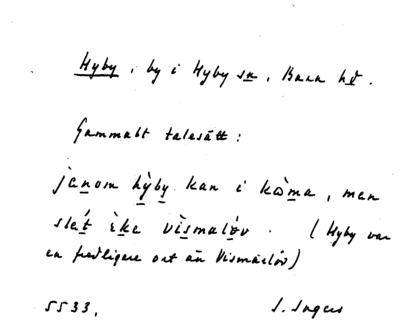 Hyby, by i Hyby sn, Bara hd.
Gammalt talesätt:
jenom hỳby kan i kòma, men
slét èke vìsmaløv. (Hyby var
en fredligare ort än Vismarlöv)
5533. S. Ingers